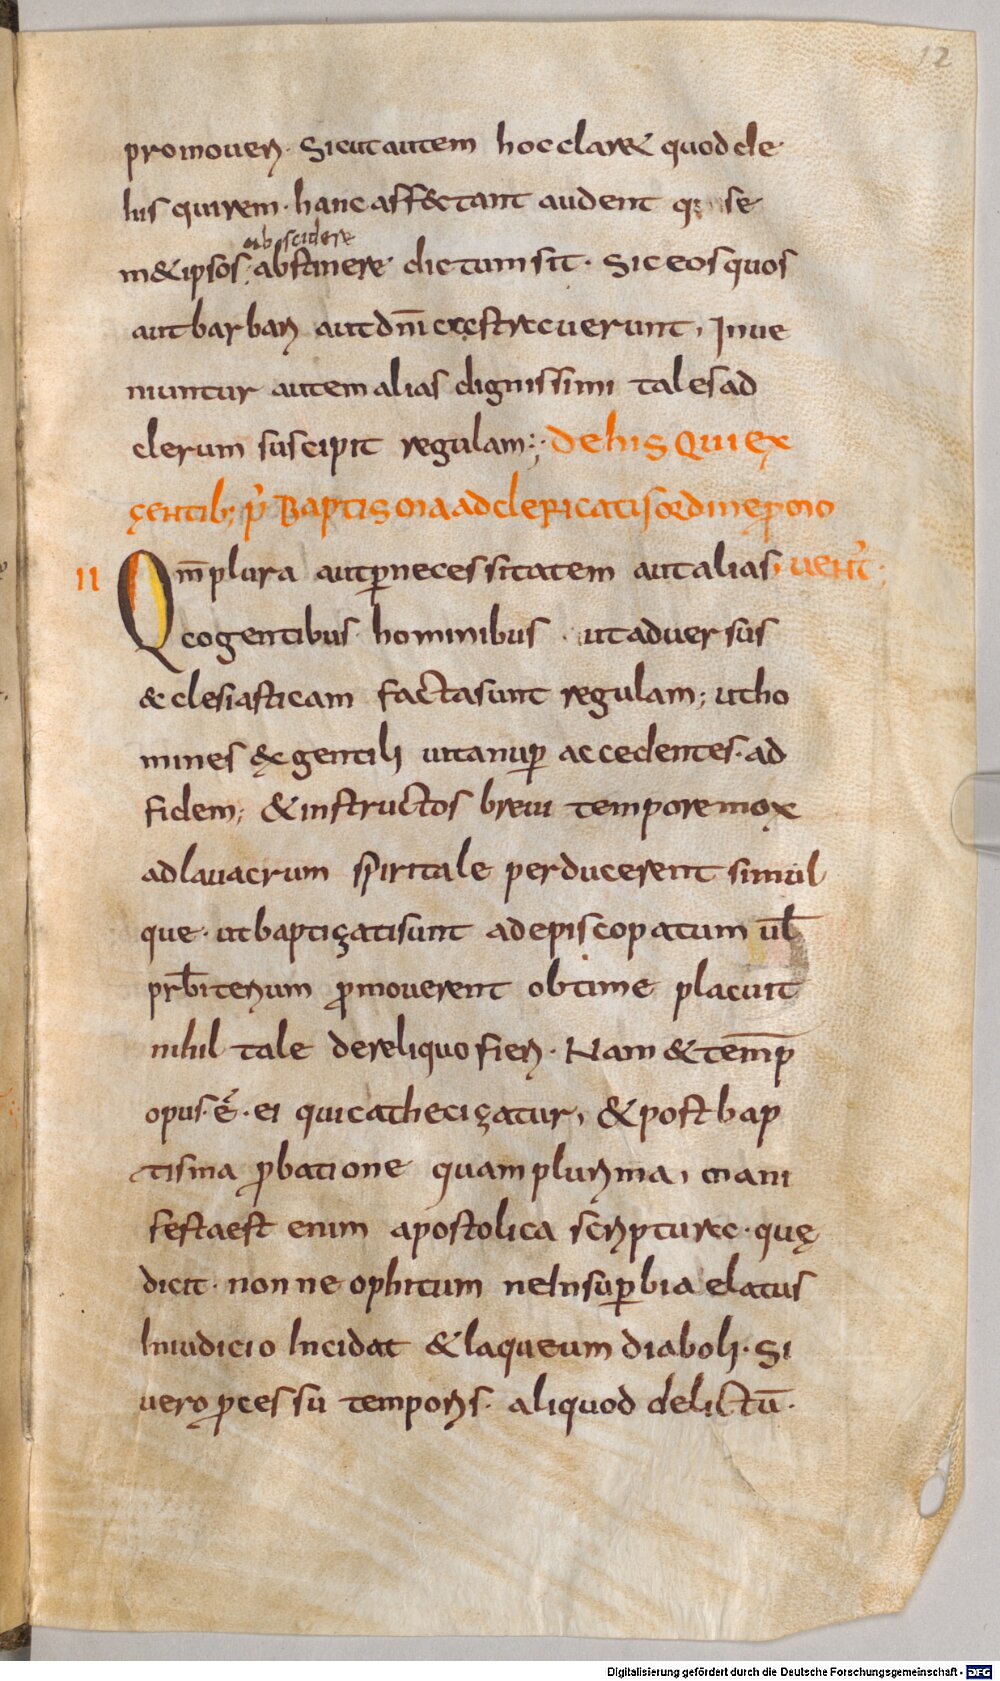 12
promoueri. Sicut autem hoc claret quod de
his qui rem. hanc affectant audent q; se
abscidere
m&ipsos; abstinere dictum sit. Sic eos quos
aut barbari aut dn̄i castrauerunt, Inue
niuntur autem alias dignissimi tales ad
clerum suscipit regulam; De his Qui ex
gentib; p' Baptisma ad clericatis ordine promo
II Qm̄ plura aut ꝑ necessitatem aut alias uert̄
cogentibus hominibus. ut aduersus
&clesiasticam facta sunt regulam; ut ho
mines & gentili uita nuꝑ accedentes. ad
fidem; & instructos breui tempore mox
ad lauacrum spiritale perducerent simul
que. ut baptizati sunt ad episcopatum uƚ
prƀiterium ꝓmouerent obtime placuit
nihil tale dereliquo fieri. Nam & temꝑ
opus. ē. ei qui cathecizatur, & post bap
tisma ꝓbatione quam plurima, mani
festa est enim apostolica scriptura. quę
dicit. non neophitum ne In suꝑbia elatus
In iudicio Incidat & laqueum diaboli. Si
uero ꝓcessu temporis. aliquod delictū.
Digitalisierung gefördert durch die Deutsche Forschungsgemeinschaft - DFG